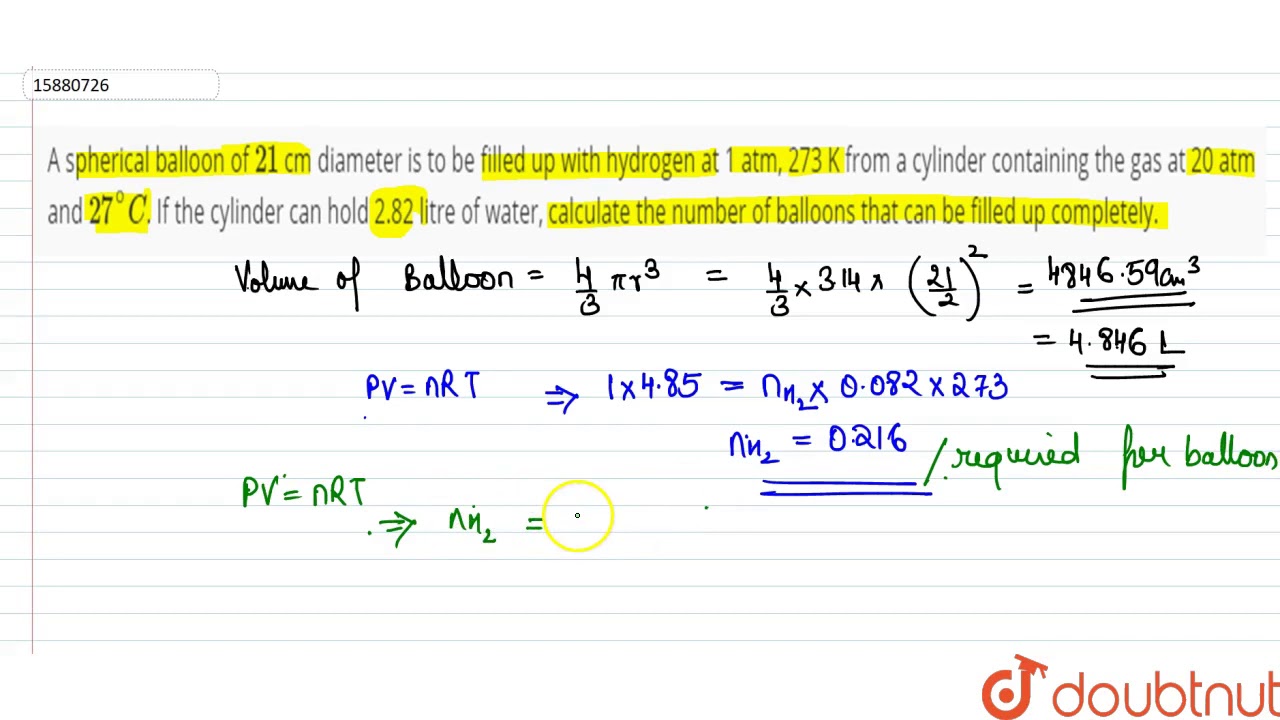 15880726
A spherical balloon of 21 cm diameter is to be filled up with hydrogen at 1 atm, 273 K from a cylinder containing the gas at 20 atm
and 27°C. If the cylinder can hold 2.82 litre of water, calculate the number of balloons that can be filled up completely.
Volume of Balloon = 4/3 πr³ = 4/3 × 314 × (21/2)² = 4846.59cm³
= 4.846 L
PV = nRT ⇒ 1×4.85 = nH₂ × 0.082×273
nH₂ = 0.216 / required per balloon
PV = nRT
⇒ nH₂ =
doubtnut